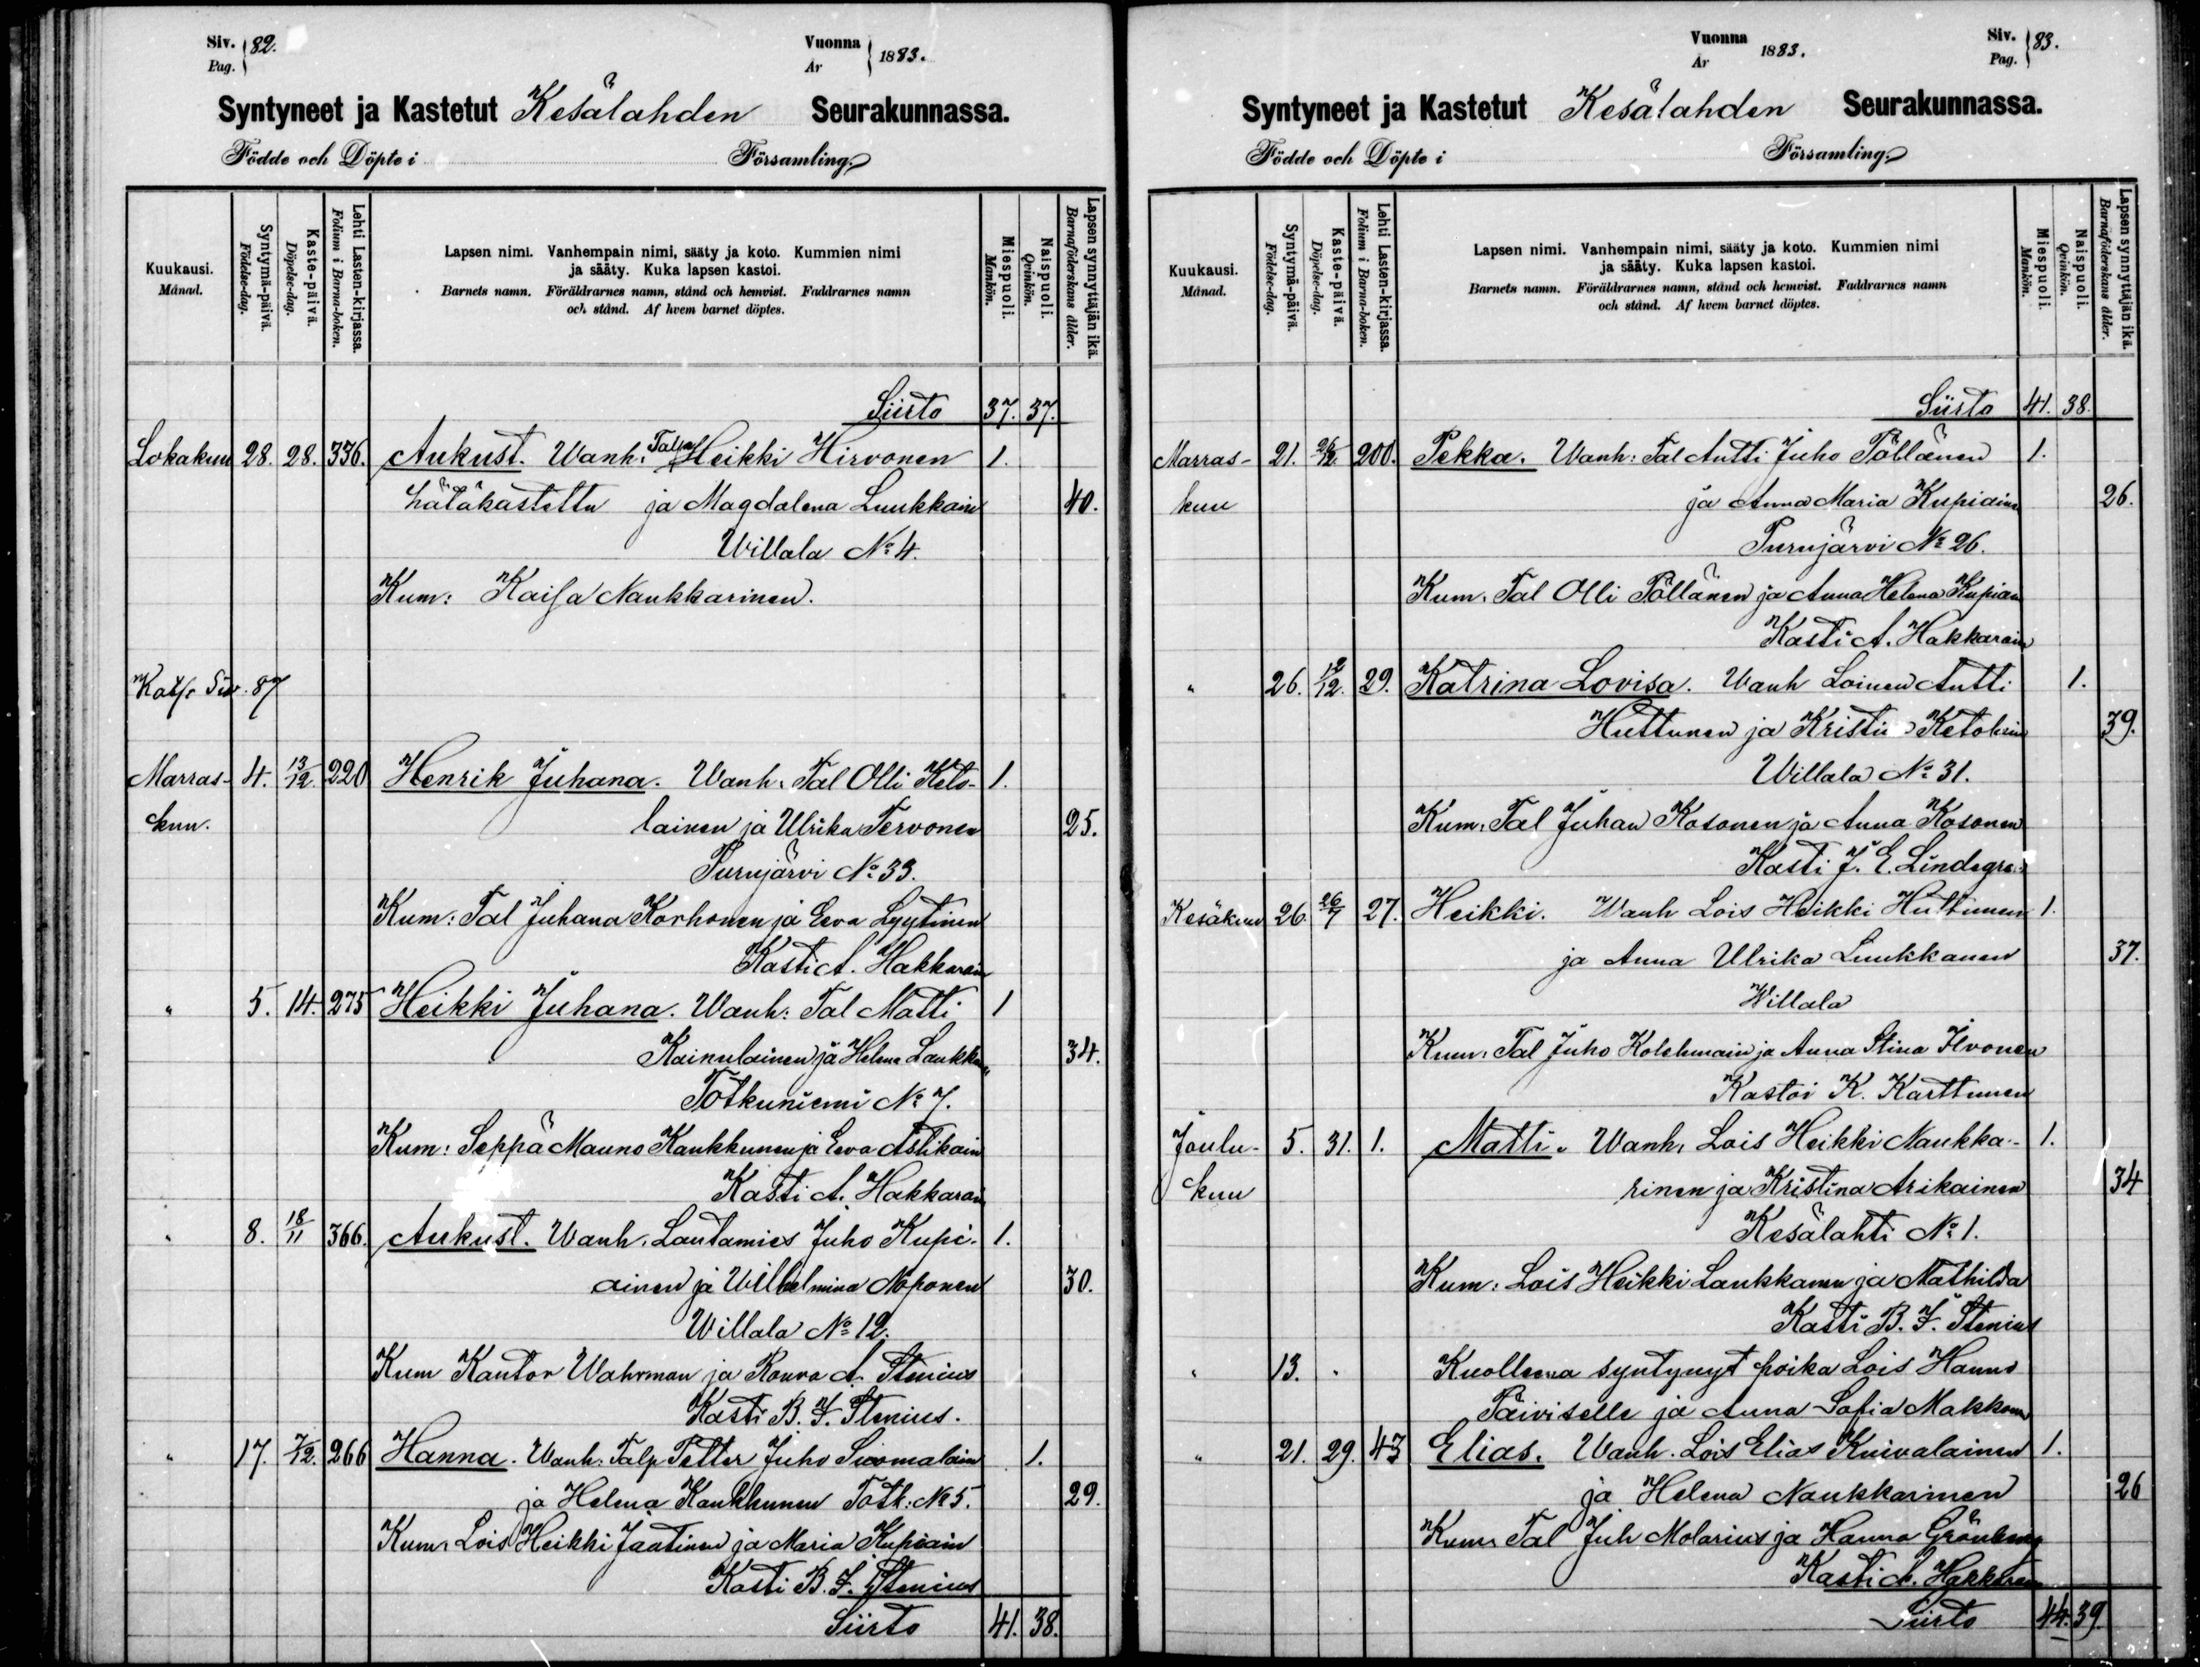 Siv. Pag. 82.
Vuonna Ar 1883.
Syntyneet ja Kastetut Kesälahden Seurakunnassa.
Födde och Döpte i Församling.
Kuukausi. Månad.
Syntymä-päivä. Födelse-dag.
Kaste-päivä. Döpelse-dag.
Lehti Lasten-kirjassa. Folium i Barna-boken.
Lapsen nimi. Vanhempain nimi, sääty ja koto. Kummien nimi
ja sääty. Kuka lapsen kastoi.
Barnets namn. Föräldrarnes namn, stånd och hemvist. Faddrarnes namn
och stånd. Af hvem barnet döptes.
Miespuoli. Mankön.
Naispuoli. Qvinkön.
Lapsen synnyttäjän ikä. Barnaföderskans ålder.
Siirto 37. 37.
Lokakuu 28. 28. 336. Aukust. Wanh: Heikki Hirvonen 1.
hätäkastettu ja Magdalena Luukkain 40.
Willala No 4.
Kum: Kaisa Naukkarinen.
Kats Siv. 87
Marras- 4. 13/12. 220 Henrik Juhana. Wanh. Tal Olli Keto- 1.
kuu. lainen ja Ulrika Tervonen 25.
Purujärvi No 33.
Kum: Tal Juhana Korhonen ja Eeva Lyytinen
Kasti A. Hakkarain
" 5. 14. 275 Heikki Juhana. Wanh: Tal Matti 1
Kainulainen ja Helena Laukka 34.
Totkuniemi No 7.
Kum: Seppä Mauno Kaukkunen ja Eeva Astikain
Kasti A. Hakkarain
" 8. 18/11 366. Aukust. Wanh. Lautamies Juho Kupi- 1.
ainen ja Wilhelmina Noponen 30.
Willala No 12.
Kum Kantor Wahrman ja Rouva A. Stenius
Kasti B. F. Stenius.
" 17. 7/12. 266 Hanna. Wanh: Talp Petter Juho Suomalain 1.
ja Helena Kaukkunen Totk: No 5. 29.
Kum. Lois Heikki Jaatinen ja Maria Kupiain
Kasti B. F. Stenius
Siirto 41. 38.
Vuonna Ar 1883.
Siv. Pag. 83.
Syntyneet ja Kastetut Kesälahden Seurakunnassa.
Födde och Döpte i Församling.
Kuukausi. Månad.
Syntymä-päivä. Födelse-dag.
Kaste-päivä. Döpelse-dag.
Lehti Lasten-kirjassa. Folium i Barna-boken.
Lapsen nimi. Vanhempain nimi, sääty ja koto. Kummien nimi
ja sääty. Kuka lapsen kastoi.
Barnets namn. Föräldrarnes namn, stånd och hemvist. Faddrarnes namn
och stånd. Af hvem barnet döptes.
Miespuoli. Mankön.
Naispuoli. Qvinkön.
Lapsen synnyttäjän ikä. Barnaföderskans ålder.
Siirto 41. 38.
Marras- 21. 200. Pekka. Wanh: Tal Antti Juho Pöllänen 1.
kuu ja Anna Maria Kupiain 26.
Purujärvi No 26.
Kum. Tal Olli Pöllänen ja Anna Helena Kupiain
Kasti A. Hakkarain
" 26. 12/12. 29. Katrina Lovisa. Wanh Loinen Antti 1.
Huttunen ja Kristin Ketolain 39.
Willala No 31.
Kum. Tal Juhan Kosonen ja Anna Kosonen
Kasti J. E. Lindegre
Kesäkuu 26. 26/7 27. Heikki. Wanh Lois Heikki Huttunen 1.
ja Anna Ulrika Luukkanen 37.
Willala
Kum. Tal Juho Kolehmain ja Anna Stina Ilvonen
Kastoi K. Karttunen
Joulu- 5. 31. 1. Matti. Wanh. Lois Heikki Naukka- 1.
kuu rinen ja Kristina Arikainen 34
Kesälahti No 1.
Kum: Lois Heikki Laukkanen ja Mathilda
Kasti B. F. Stenius
" 13. " Kuolleena syntynyt poika Lois Hannu
Päiviselle ja Anna Sofia Makkonen
" 21. 29. 43 Elias. Wanh. Lois Elias Kuivalainen 1.
ja Helena Naukkarinen 26
Kum Tal Juh Molarius ja Hanna Grönberg
Kasti A. Hakkarain
Siirto 44. 39.